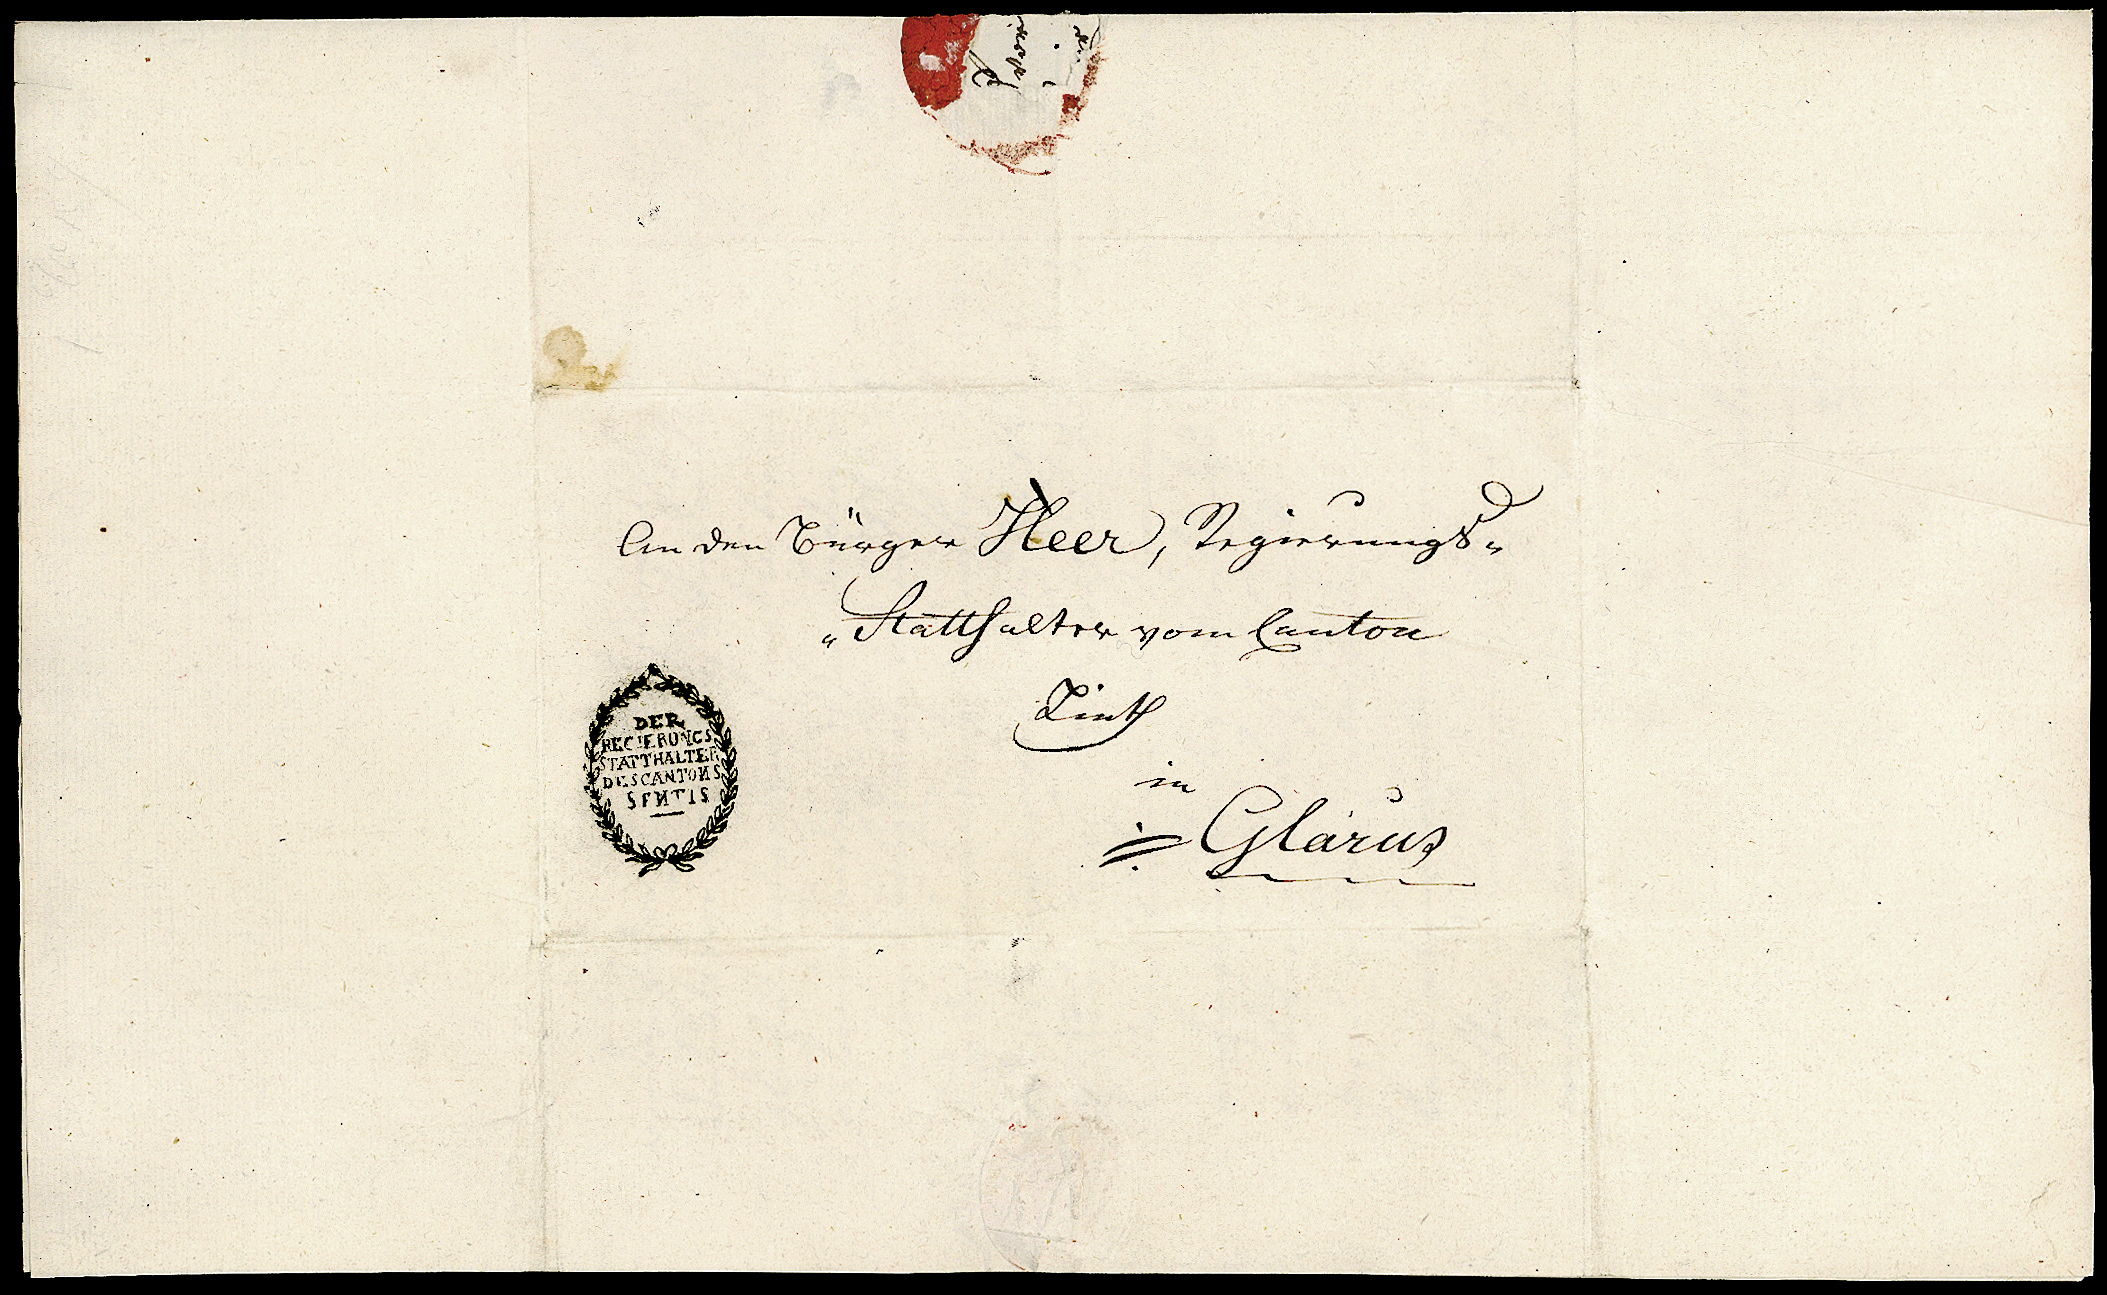 An den Bürger Heer, Regierungs„
„Statthalter vom Canton
Linth
in
Glarus
DER
REGIERUNGS
STATTHALTER
DES CANTONS
SENTIS